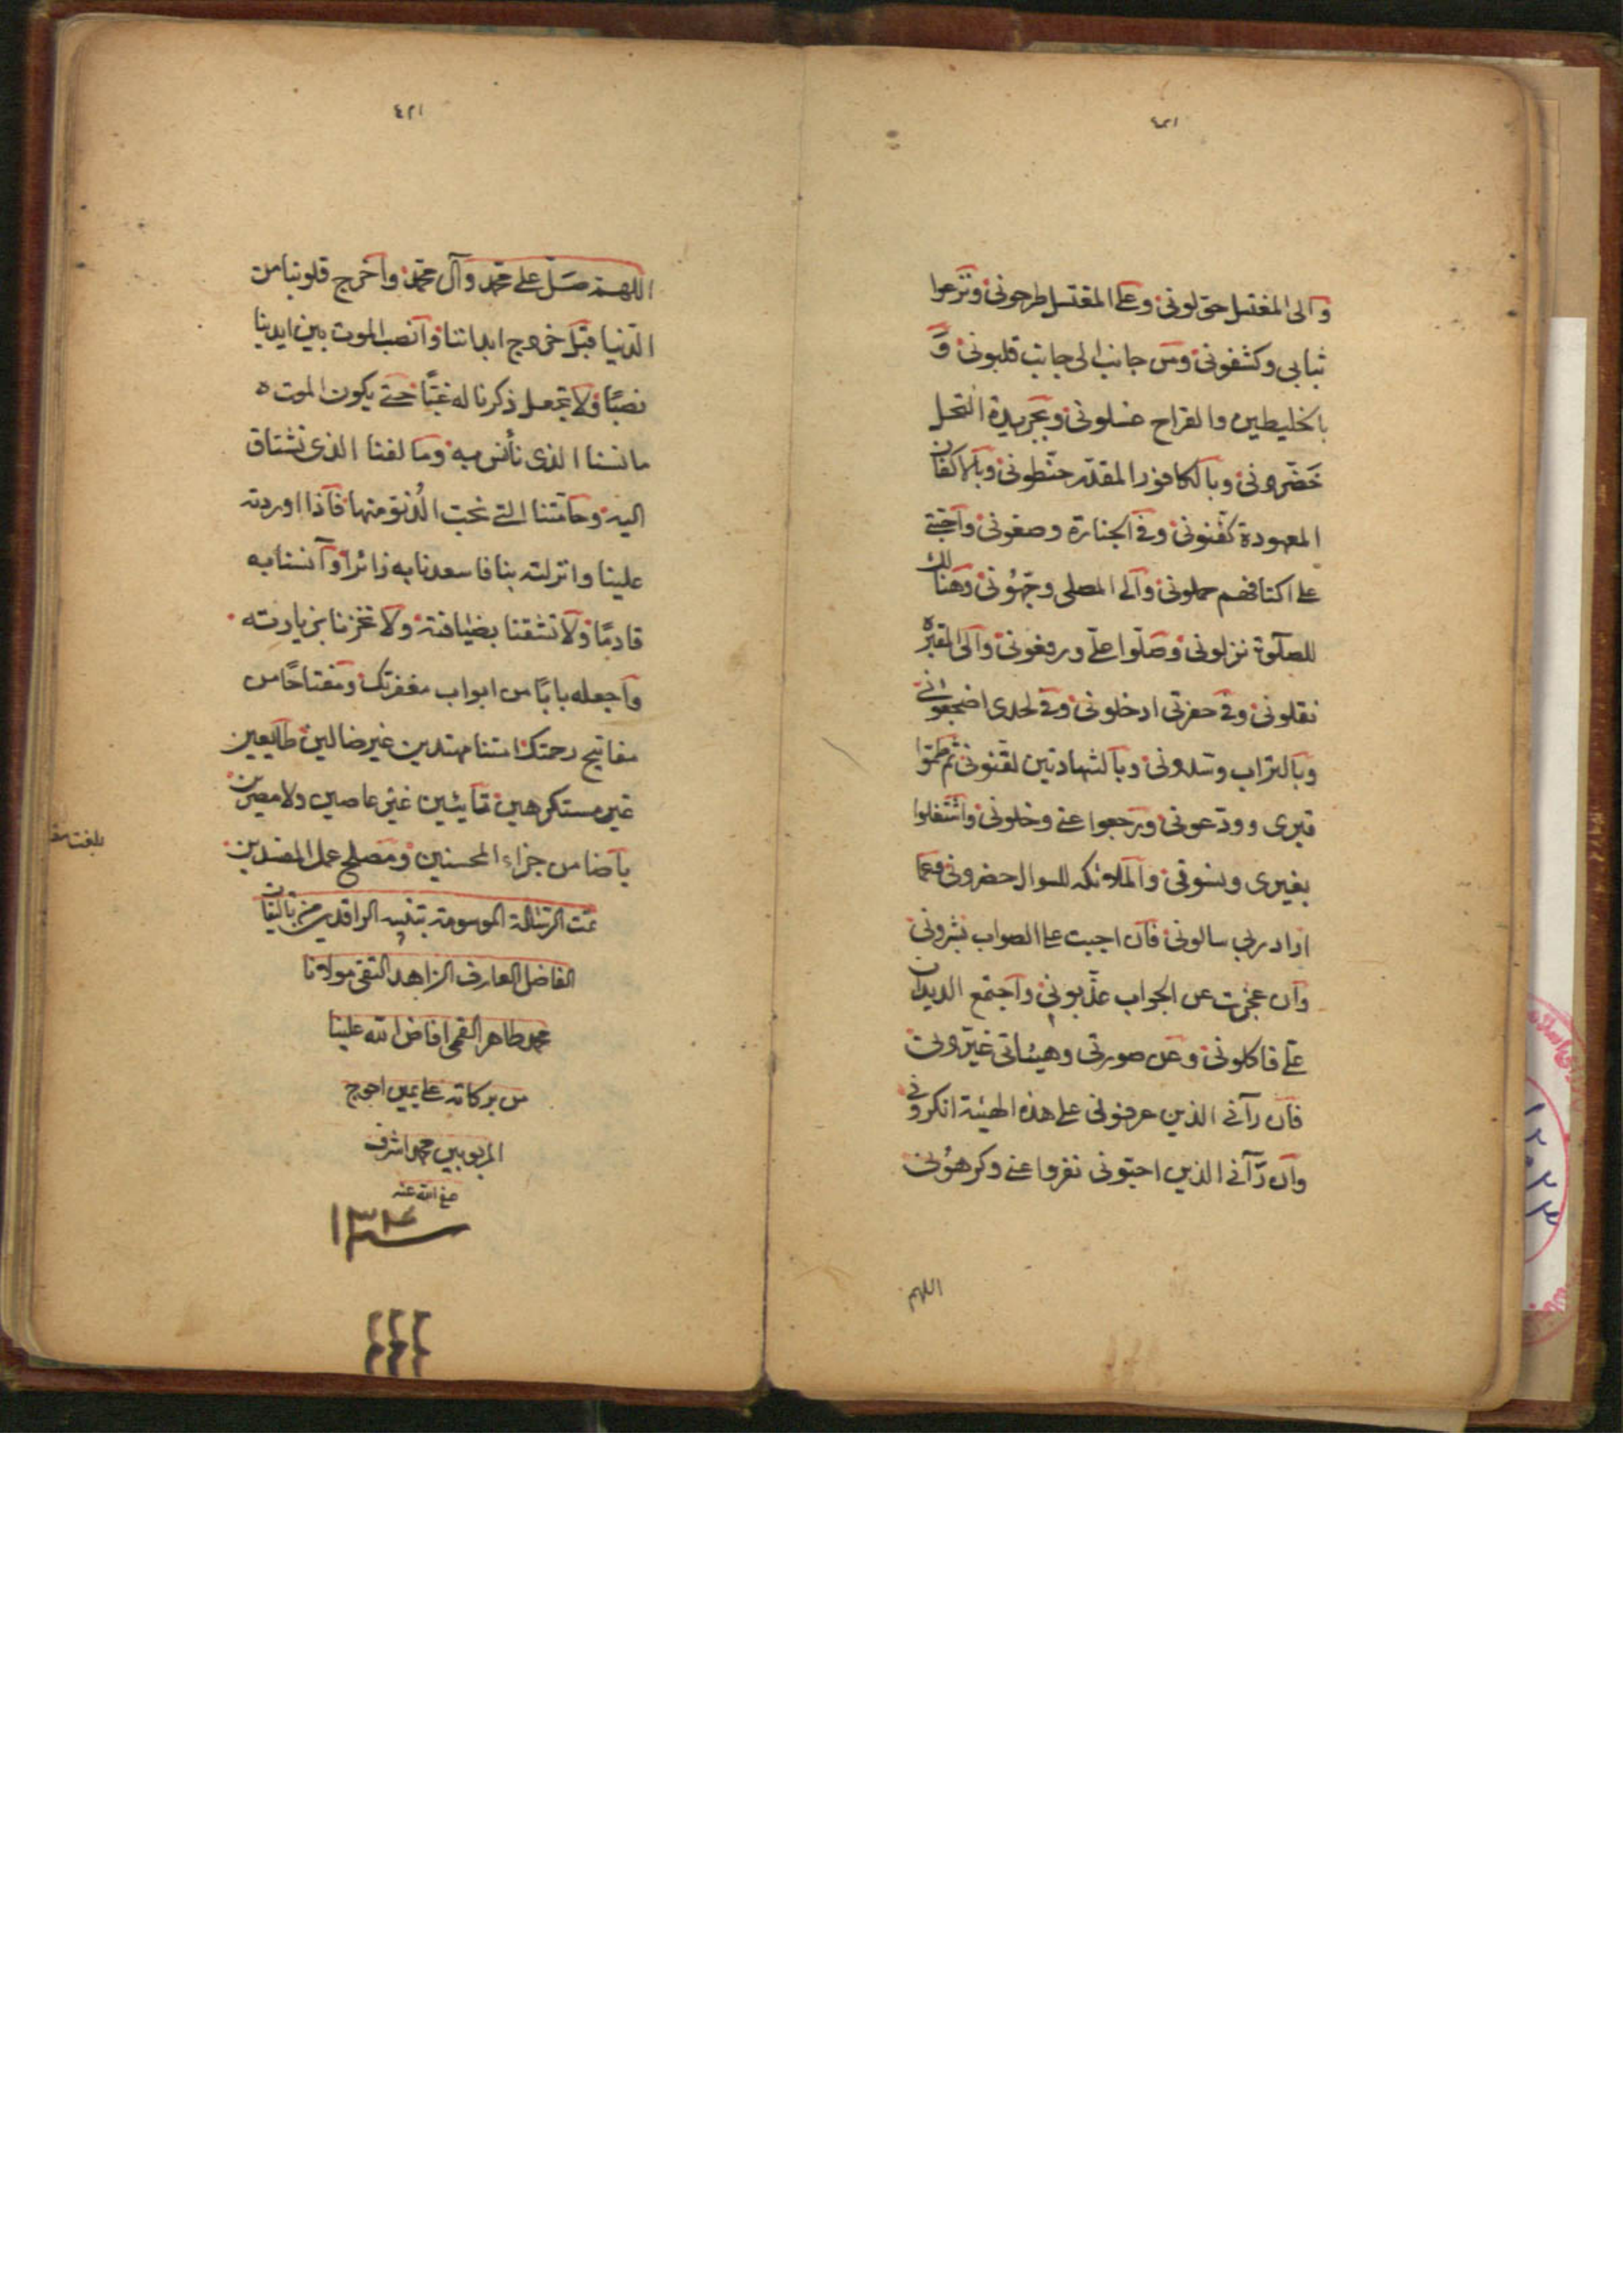 والى المغتسل حولونى وعلى المغتسل طرحونى ونزعوا
ثيابى وكشفونى ومن جانب الى جانب قلبونى و
بالخليطين والقراح غسلونى وبجريدة النخل
خضرونى وبالكافور المقدر حنطونى وبالاكفان
المعهودة كفنونى وفى الجنازة وضعونى واحبتى
على اكتافهم حملونى والى المصلى وجهونى وهنالك
للصلوة نزلونى وصلوا على ورفعونى والى المقبرة
نقلونى وفى حفرتى ادخلونى وفى لحدى اضجعونى
وبالتراب وسدونى وبالشهادتين لقنونى ثم طموا
قبرى وودعونى ورجعوا عنى وخلونى واشتغلوا
بغيرى ونسونى والملائكه للسوال حضرونى وعما
اراد ربى سالونى فان اجبت على الصواب بشرونى
وان عجزت عن الجواب عذبونى واجتمع الديدان
على فاكلونى وعن صورتى وهيئاتى غيرونى
فان رآنى الذين عرفونى على هذه الهيئة انكرونى
وان رآنى الذين احبونى نفروا عنى وكرهونى
اللهم
٤٢١
اللهم صل على محمد وآل محمد واخرج قلوبنا من
الدنيا قبل خروج ابداننا وانصب الموت بين ايدينا
نصبًا ولا تجعل ذكرنا له غبًا حتى يكون الموت
مانسنا الذى نأنس به ومالفنا الذى نشتاق
اليه وحامتنا التى نحب الدنو منها فاذا اوردته
علينا وانزلته بنا فاسعدنا به زائرًا وآنسنا به
قادمًا ولا تشقنا بضيافته ولا تخزنا بزيارته
واجعله بابًا من ابواب مغفرتك ومفتاحًا من
مفاتيح رحمتك امتنا مهتدين غير ضالين طايعين
غير مستكرهين تائبين غير عاصين ولا مصرين
يا ضامن جزاء المحسنين ومصلح عمل المفسدين
تمت الرسالة الموسومة بتنبيه الراقدين من تاليفات
الفاضل العارف الزاهد التقى مولانا
محمد طاهر القمى افاض الله علينا
من بركاته على يمين احوج
المربوبين محمد اشرف
عفى الله عنه